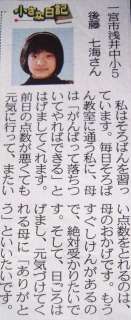 小さな日記
一宮市浅井中小5
後藤 七海さん
私はそろばんを習っ
ています。毎日そろば
ん教室に通う私に、母
は「がんばって落ちつ
いてやればできる」と
はげましてくれます。
前日の点数が悪くても
元気に行って、またい
い点数をとれるのは、
母のおかげです。もう
すぐしけんがあるの
で、絶対受かりたいで
す。そして、日ごろは
げまし、元気づけてく
れる母に「ありがと
う」といいたいです。